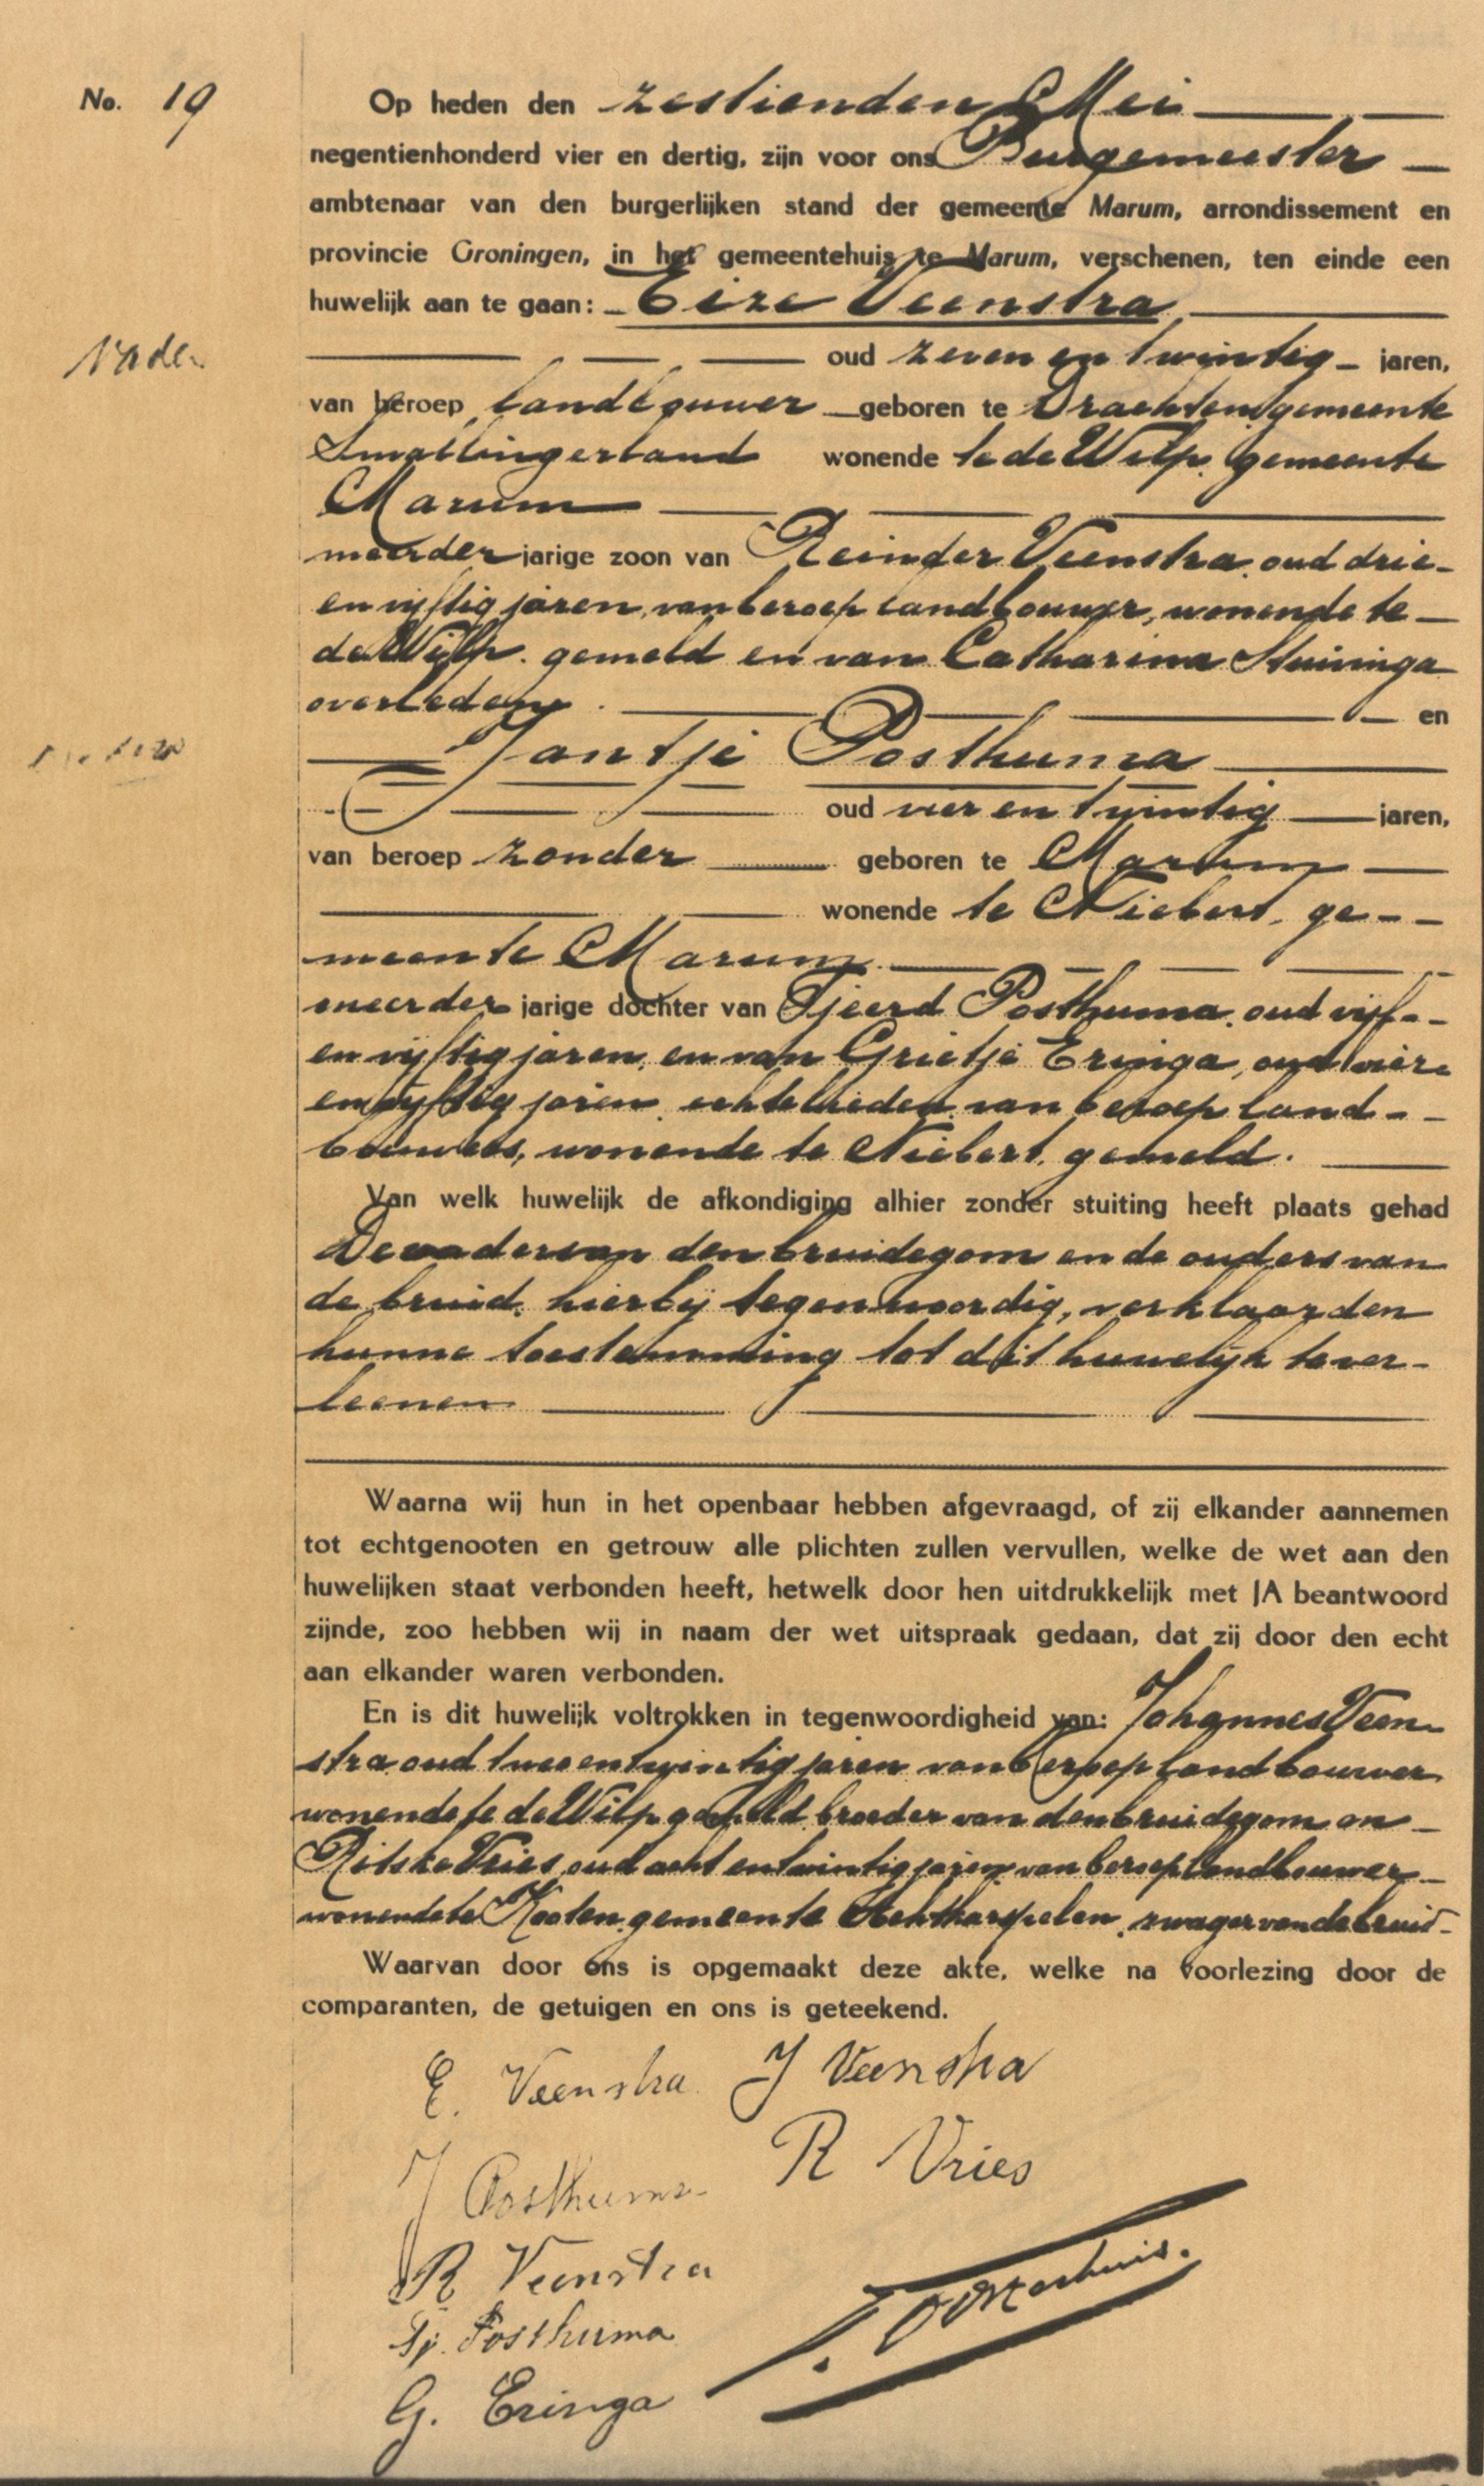 No. 19
Op heden den zestienden Mei
negentienhonderd vier en dertig, zijn voor ons Burgemeester
ambtenaar van den burgerlijken stand der gemeente Marum, arrondissement en
provincie Groningen, in het gemeentehuis te Marum, verschenen, ten einde een
huwelijk aan te gaan: Eize Veenstra
oud zeven en twintig jaren,
van beroep landbouwer geboren te Drachten, gemeente
Smallingerland wonende te de Wilp, gemeente
Marum
meerderjarige zoon van Reinder Veenstra, oud drie-
en vijftig jaren, van beroep landbouwer, wonende te
de Wilp, gemeld en van Catharina Stuivinga
overleden. en
Jantje Posthuma
oud vier en twintig jaren,
van beroep zonder geboren te Marum
wonende te Niebert, ge-
meente Marum
meerderjarige dochter van Tjeerd Posthuma, oud vijf-
en vijftig jaren, en van Grietje Eringa, oud vier-
en vijftig jaren, echtelieden, van beroep land-
bouwers, wonende te Niebert, gemeld.
Van welk huwelijk de afkondiging alhier zonder stuiting heeft plaats gehad
De vader van den bruidegom en de ouders van
de bruid, hierbij tegenwoordig, verklaarden
hunne toestemming tot dit huwelijk te ver-
leenen
Waarna wij hun in het openbaar hebben afgevraagd, of zij elkander aannemen
tot echtgenooten en getrouw alle plichten zullen vervullen, welke de wet aan den
huwelijken staat verbonden heeft, hetwelk door hen uitdrukkelijk met JA beantwoord
zijnde, zoo hebben wij in naam der wet uitspraak gedaan, dat zij door den echt
aan elkander waren verbonden.
En is dit huwelijk voltrokken in tegenwoordigheid van: Johannes Veen-
stra oud twee en twintig jaren van beroep landbouwer
wonende te de Wilp gemeld broeder van den bruidegom en
Ritske Vries, oud acht en twintig jaren van beroep landbouwer
wonende te Kooten, gemeente Achtkarspelen, zwager van de bruid
Waarvan door ons is opgemaakt deze akte, welke na voorlezing door de
comparanten, de getuigen en ons is geteekend.
E. Veenstra J Veenstra
J Posthuma R Vries
R Veenstra
Tj. Posthuma
G. Eringa